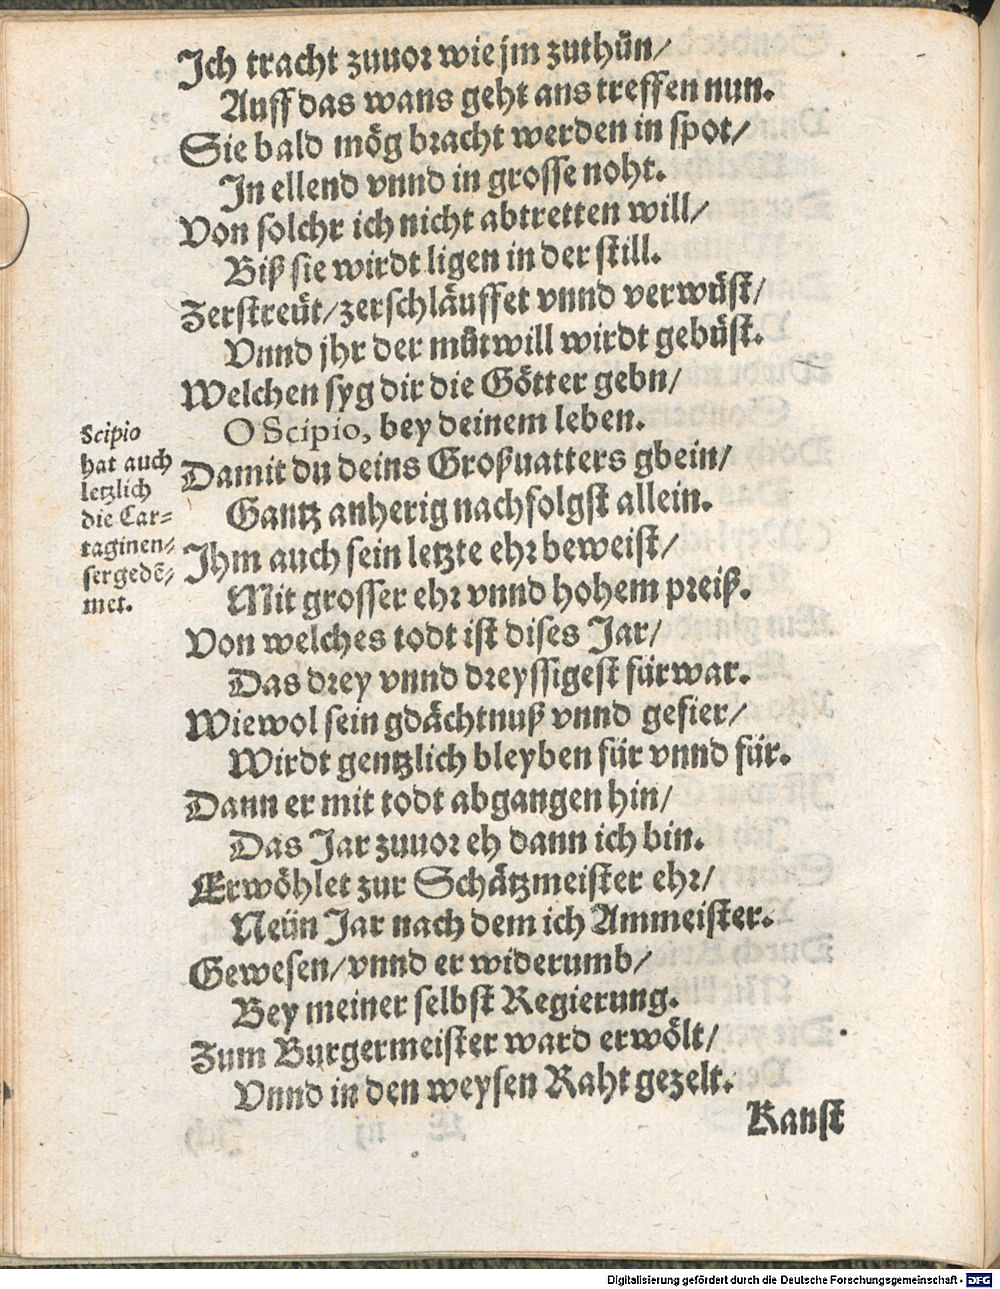 Ich tracht zuuor wie jm zuthün/
Auff das wans geht ans treffen nun.
Sie bald mög bracht werden in spot/
In ellend vnnd in grosse noht.
Von solchr ich nicht abtretten will/
Biß sie wirdt ligen in der still.
Zerstreüt/zerschläuffet vnnd verwüst/
Vnnd jhr der mütwill wirdt gebüst.
Welchen syg dir die Götter gebn/
O Scipio, bey deinem leben.
Damit du deins Großuatters gbein/
Gantz anherig nachfolgst allein.
Ihm auch sein letzte ehr beweist/
Mit grosser ehr vnnd hohem preiß.
Von welches todt ist dises Jar/
Das drey vnnd dreyssigest fürwar.
Wiewol sein gdächtnuß vnnd gefier/
Wirdt gentzlich bleyben für vnnd für.
Dann er mit todt abgangen hin/
Das Jar zuuor eh dann ich bin.
Erwöhlet zur Schätzmeister ehr/
Neün Jar nach dem ich Ammeister.
Gewesen/vnnd er widerumb/
Bey meiner selbst Regierung.
Zum Burgermeister ward erwölt/
Vnnd in den weysen Raht gezelt.
Kanst
Scipio
hat auch
letzlich
die Car=
taginen=
ser gedē=
met.
Digitalisierung gefördert durch die Deutsche Forschungsgemeinschaft - DFG